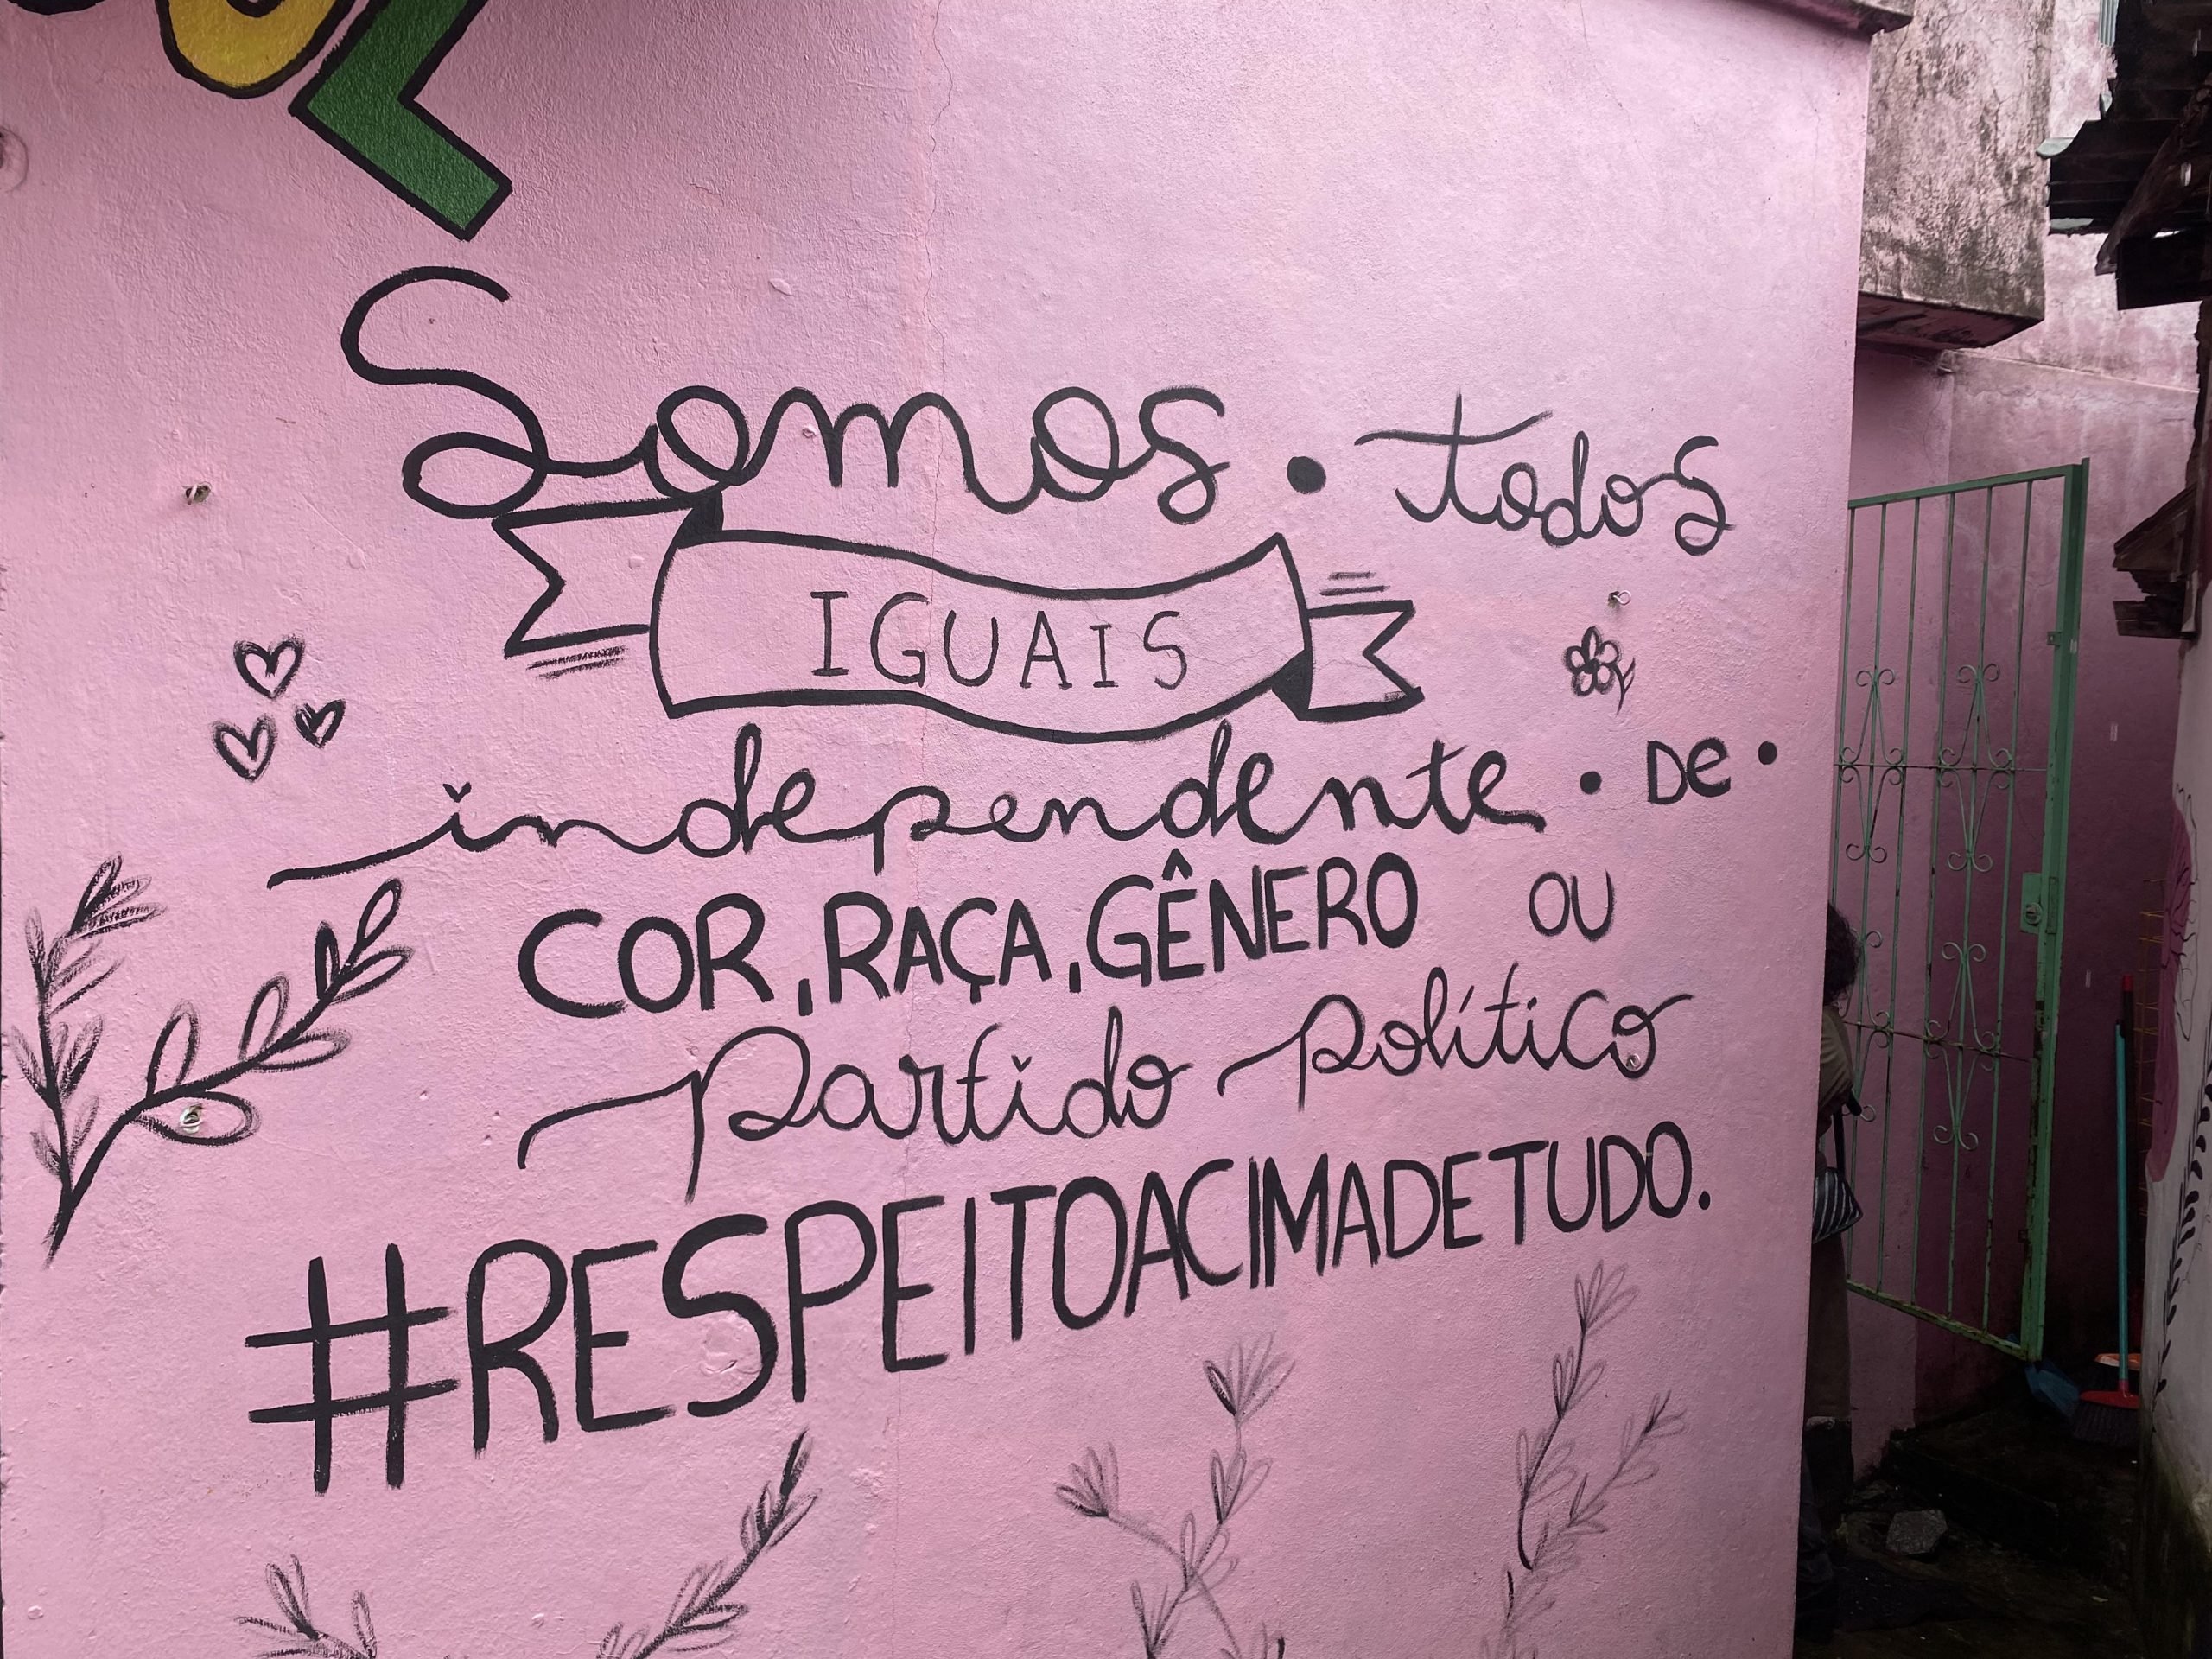 Somos • todos
IGUAIS
independente • De •
COR, RAÇA, GÊNERO OU
partido político
#RESPEITOACIMADETUDO.